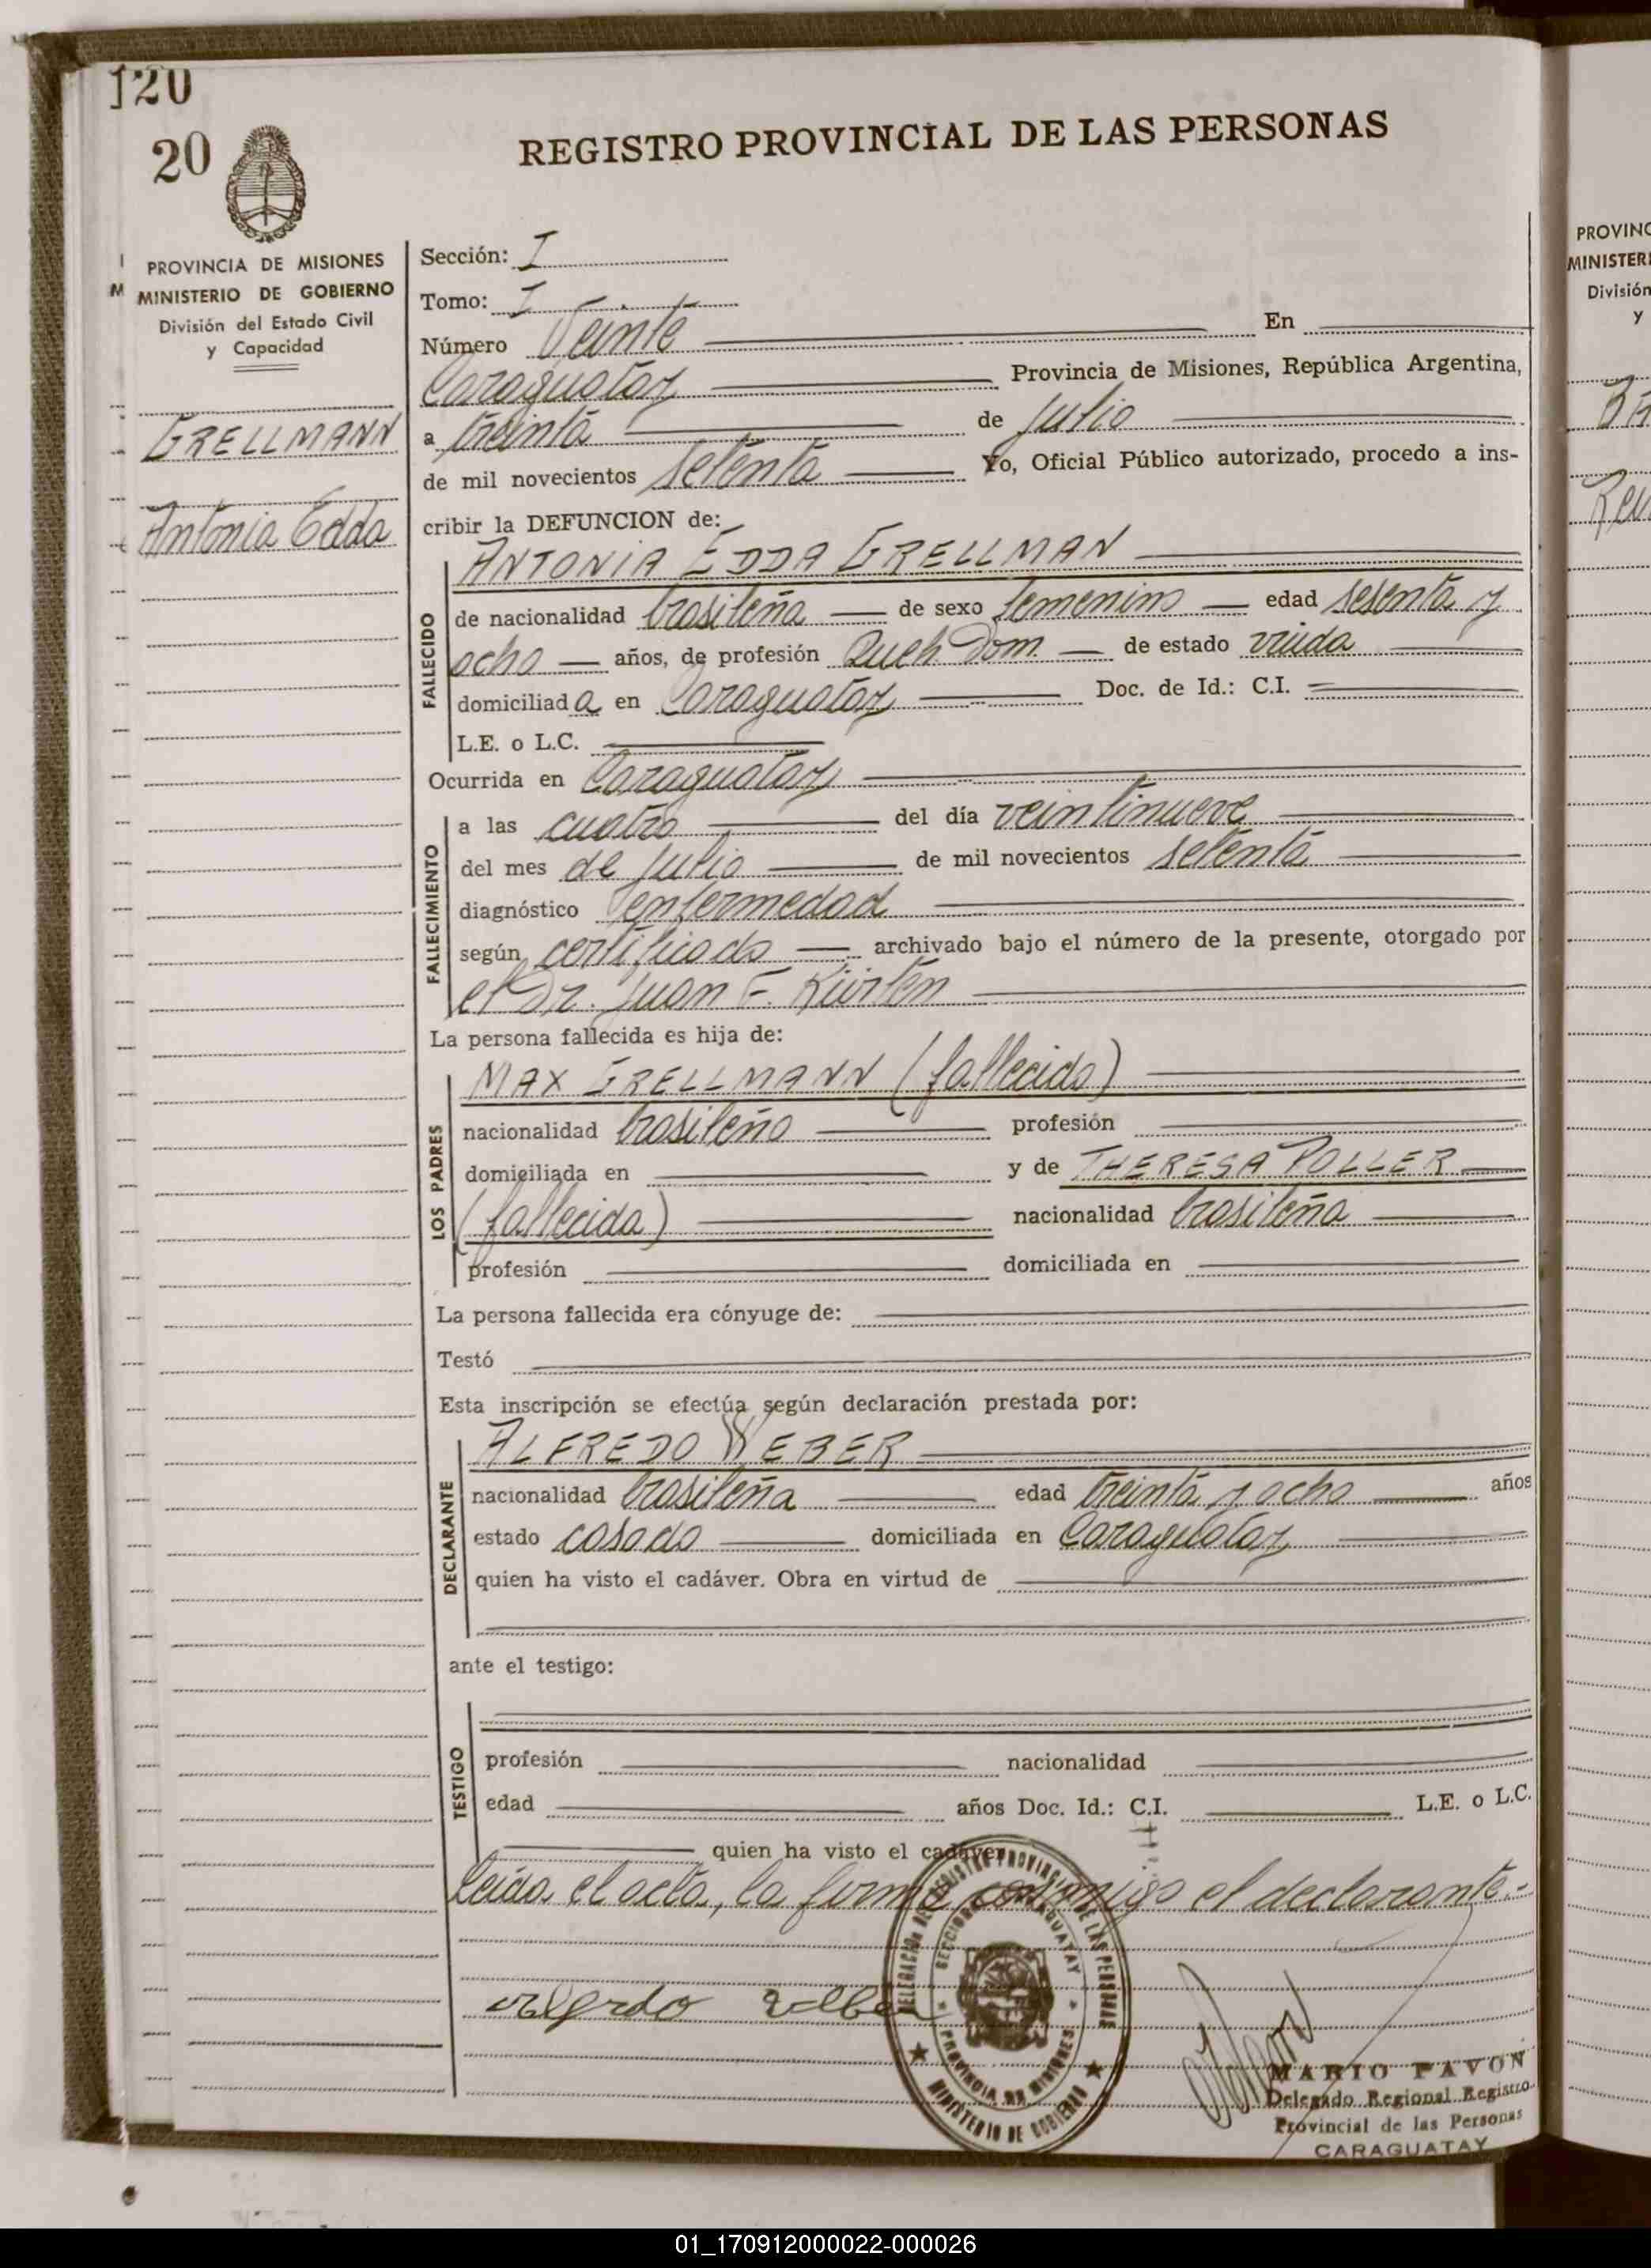 120
20
REGISTRO PROVINCIAL DE LAS PERSONAS
PROVINCIA DE MISIONES
MINISTERIO DE GOBIERNO
División del Estado Civil
y Capacidad
GRELLMANN
Antonia Edda
Sección: I
Tomo: I
Número Veinte En
Caraguatay Provincia de Misiones, República Argentina,
a treinta de julio
de mil novecientos setenta Yo, Oficial Público autorizado, procedo a ins-
cribir la DEFUNCION de:
FALLECIDO
ANTONIA EDDA GRELLMAN
de nacionalidad brasileña de sexo femenino edad sesenta y
ocho años, de profesión Queh. Dom. de estado viuda
domiciliada en Caraguatay Doc. de Id.: C.I.
L.E. o L.C.
Ocurrida en Caraguatay
FALLECIMIENTO
a las cuatro del día veintinueve
del mes de julio de mil novecientos setenta
diagnóstico enfermedad
según certificado archivado bajo el número de la presente, otorgado por
el Dr. Juan F. Kürten
La persona fallecida es hija de:
LOS PADRES
MAX GRELLMANN (fallecido)
nacionalidad brasileño profesión
domiciliada en y de THERESA POLLER
(fallecida) nacionalidad brasileña
profesión domiciliada en
La persona fallecida era cónyuge de:
Testó
Esta inscripción se efectúa según declaración prestada por:
DECLARANTE
ALFREDO WEBER
nacionalidad brasileña edad treinta y ocho años
estado casado domiciliada en Caraguatay
quien ha visto el cadáver. Obra en virtud de
ante el testigo:
TESTIGO
profesión nacionalidad
edad años Doc. Id.: C.I. L.E. o L.C.
quien ha visto el cadáver
Leida el acta, la firma conmigo el declarante.-
DELEGACION DEL REGISTRO PROVINCIAL DE LAS PERSONAS
SECCION CARAGUATAY
PROVINCIA DE MISIONES
MINISTERIO DE GOBIERNO
MARIO PAVON
Delegado Regional Registro
Provincial de las Personas
CARAGUATAY
PROVINC
MINISTERI
División
y
01_170912000022-000026